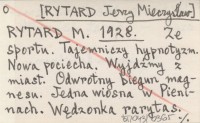 0 [RYTARD Jerzy Mieczysław]
RYTARD M. 1928. Ze
sportu. Tajemniczy hypnotyzm.
Nowa pociecha. Wyjdźmy z
miast. Odwrotny biegun mag-
nesu. Jedna wiosna w Pieni-
nach. Wędzonka rarytas.